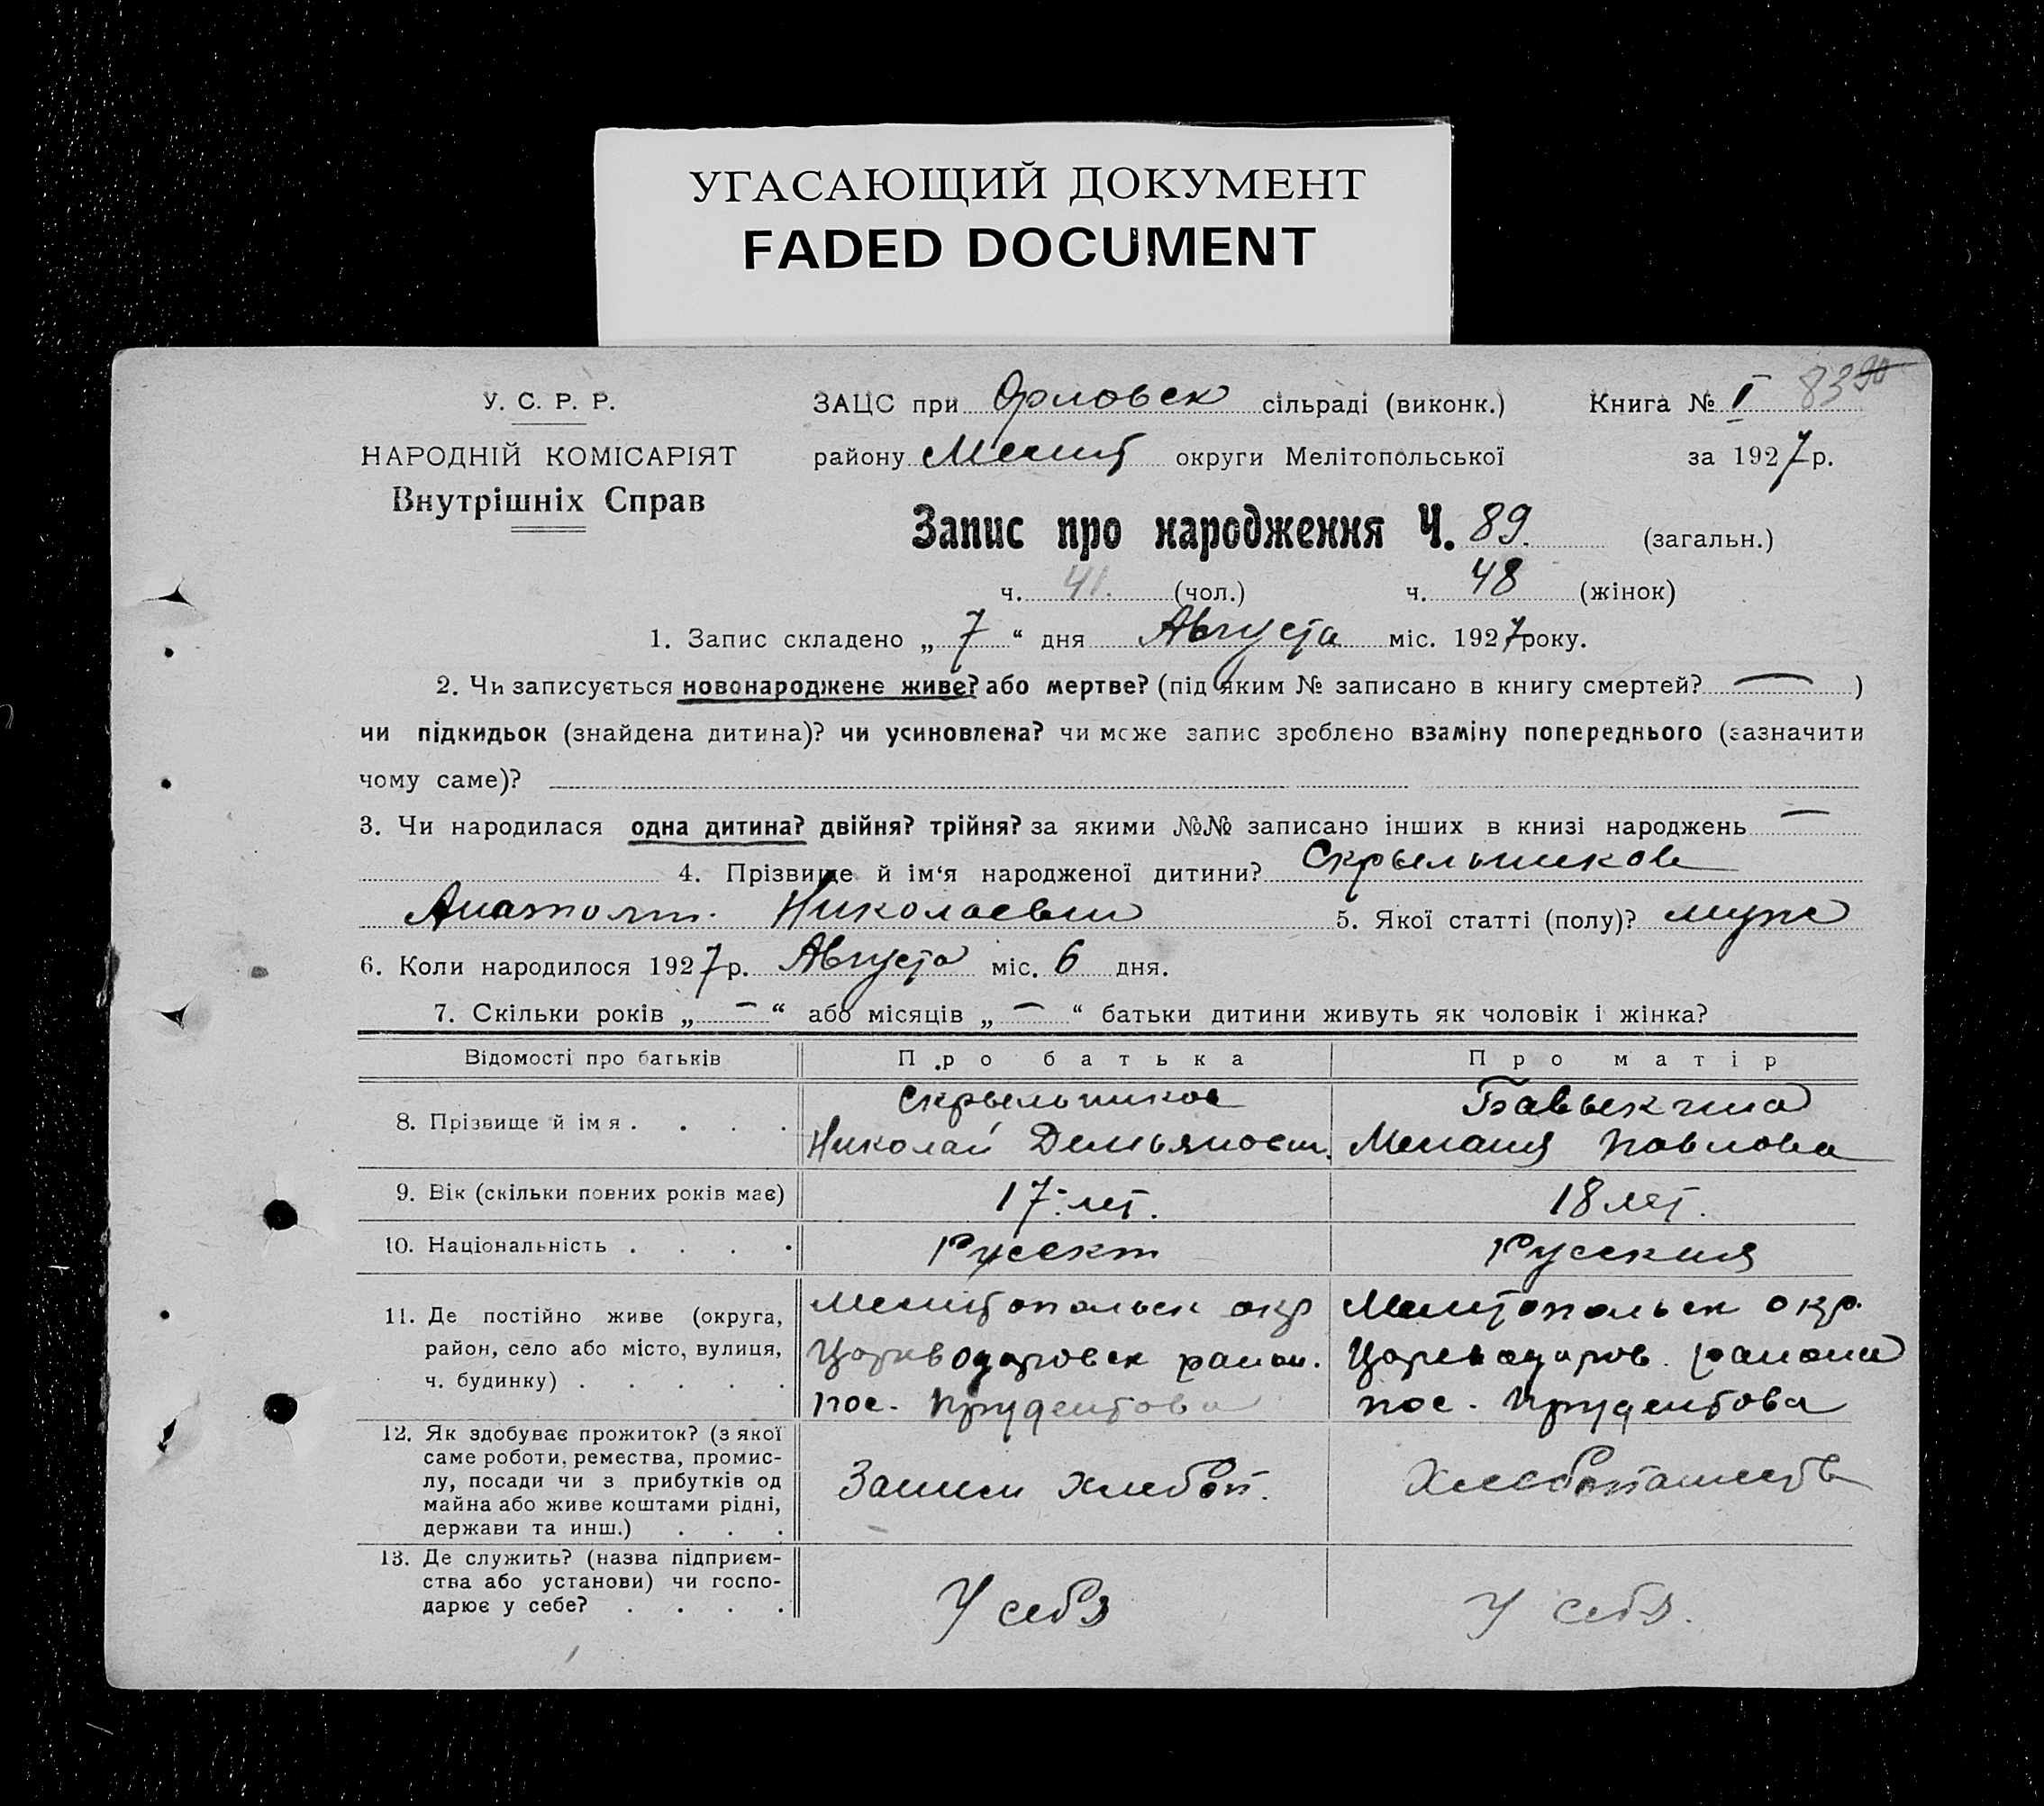 УГАСАЮЩИЙ ДОКУМЕНТ
FADED DOCUMENT
У. С. Р. Р.
НАРОДНІЙ КОМІСАРІЯТ
Внутрішніх Справ
ЗАЦС при Орловск сільраді (виконк.) Книга № I 83 90
району Мелит округи Мелітопольської за 1927 р.
Запис про народження Ч. 89. (загальн.)
ч. 41. (чол.) ч. 48 (жінок)
1. Запис складено „ 7 “ дня Августа міс. 1927 року.
2. Чи записується новонароджене живе? або мертве? (під яким № записано в книгу смертей? — )
чи підкидьок (знайдена дитина)? чи усиновлена? чи може запис зроблено взаміну попереднього (зазначити
чому саме)?
3. Чи народилася одна дитина? двійня? трійня? за якими №№ записано інших в книзі народжень —
4. Прізвище й ім‘я народженої дитини? Скрыльников
Анатолий Николаевич 5. Якої статті (полу)? муж
6. Коли народилося 1927 р. Августа міс. 6 дня.
7. Скільки років „ — “ або місяців „ — “ батьки дитини живуть як чоловік і жінка?
Відомості про батьків Про батька Про матір
8. Прізвище й імя . . . . Скрыльников
Николай Демьянович. Мелания Павлова
9. Вік (скільки повних років має) 17 лет. 18 лет.
10. Національність . . . . Русский Русския
11. Де постійно живе (округа, район, село або місто, вулиця, ч. будинку) . . . . .
Мелитопольск окр Мелитопольск окр.
район. района
пос. Прудентова пос. Прудентова
12. Як здобуває прожиток? (з якої саме роботи, ремества, промислу, посади чи з прибутків од майна або живе коштами рідні, держави та инш.) . . .
хлебоп. Хлебопашеств
13. Де служить? (назва підприємства або установи) чи господарює у себе? . . . .
У себя У себя.